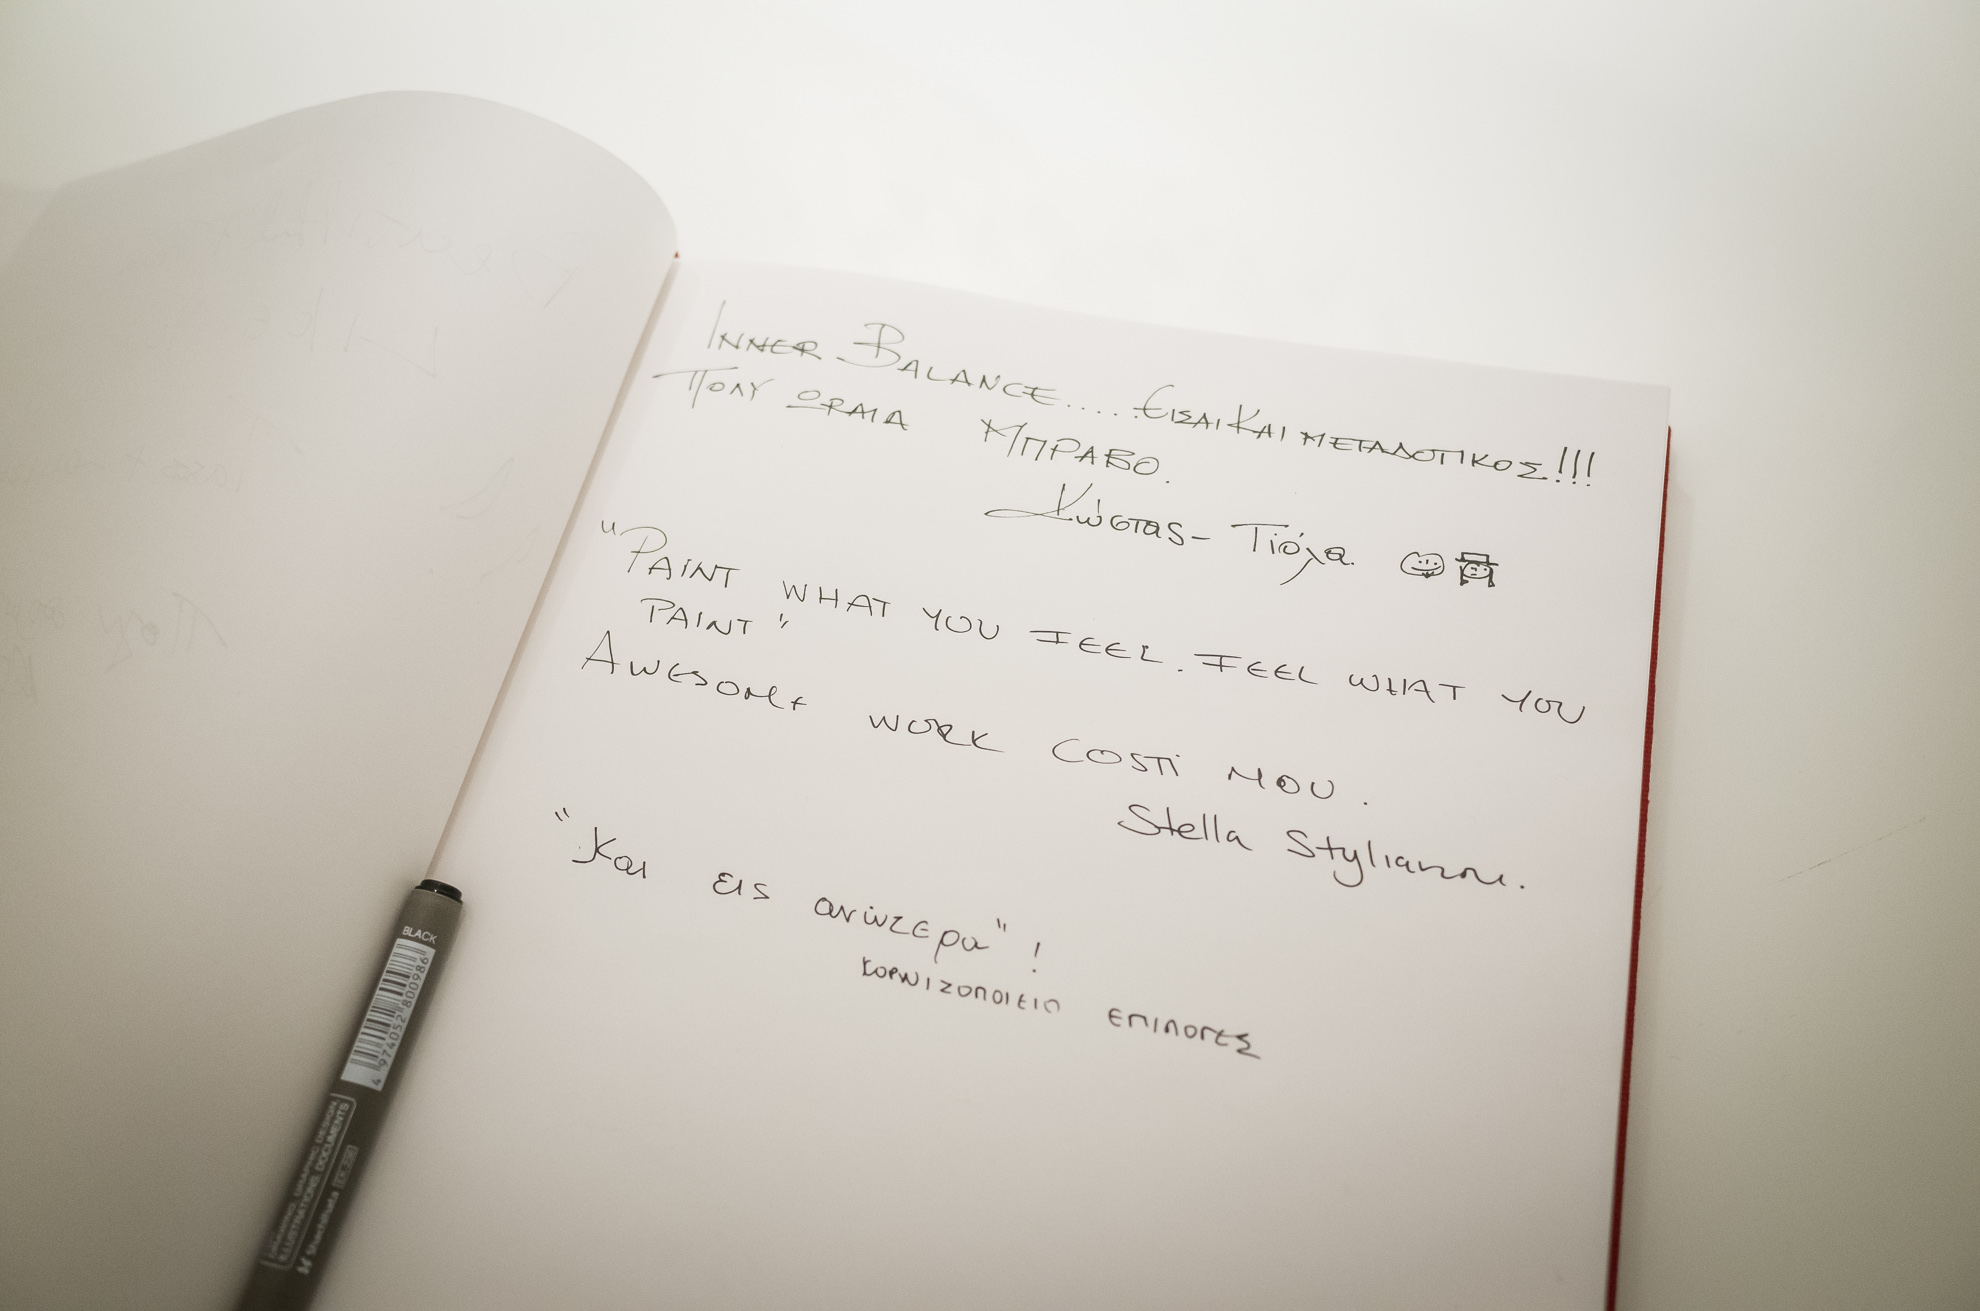 INNER BALANCE.....ΕΙΣΑΙ ΚΑΙ ΜΕΤΑΔΟΤΙΚΟΣ!!!
ΠΟΛΥ ΩΡΑΙΑ ΜΠΡΑΒΟ.
Κώστας - Τιόλα.
"PAINT WHAT YOU FEEL. FEEL WHAT YOU
PAINT"
AWESOME WORK COSTI MOU.
Stella Stylianou.
"Και εις ανώτερα"!
ΚΟΡΝΙΖΟΠΟΙΕΙΟ ΕΠΙΛΟΓΕΣ
BLACK
4 974052 800986
DRAWING, GRAPHIC DESIGN,
ILLUSTRATIONS, DOCUMENTS
Shachihata